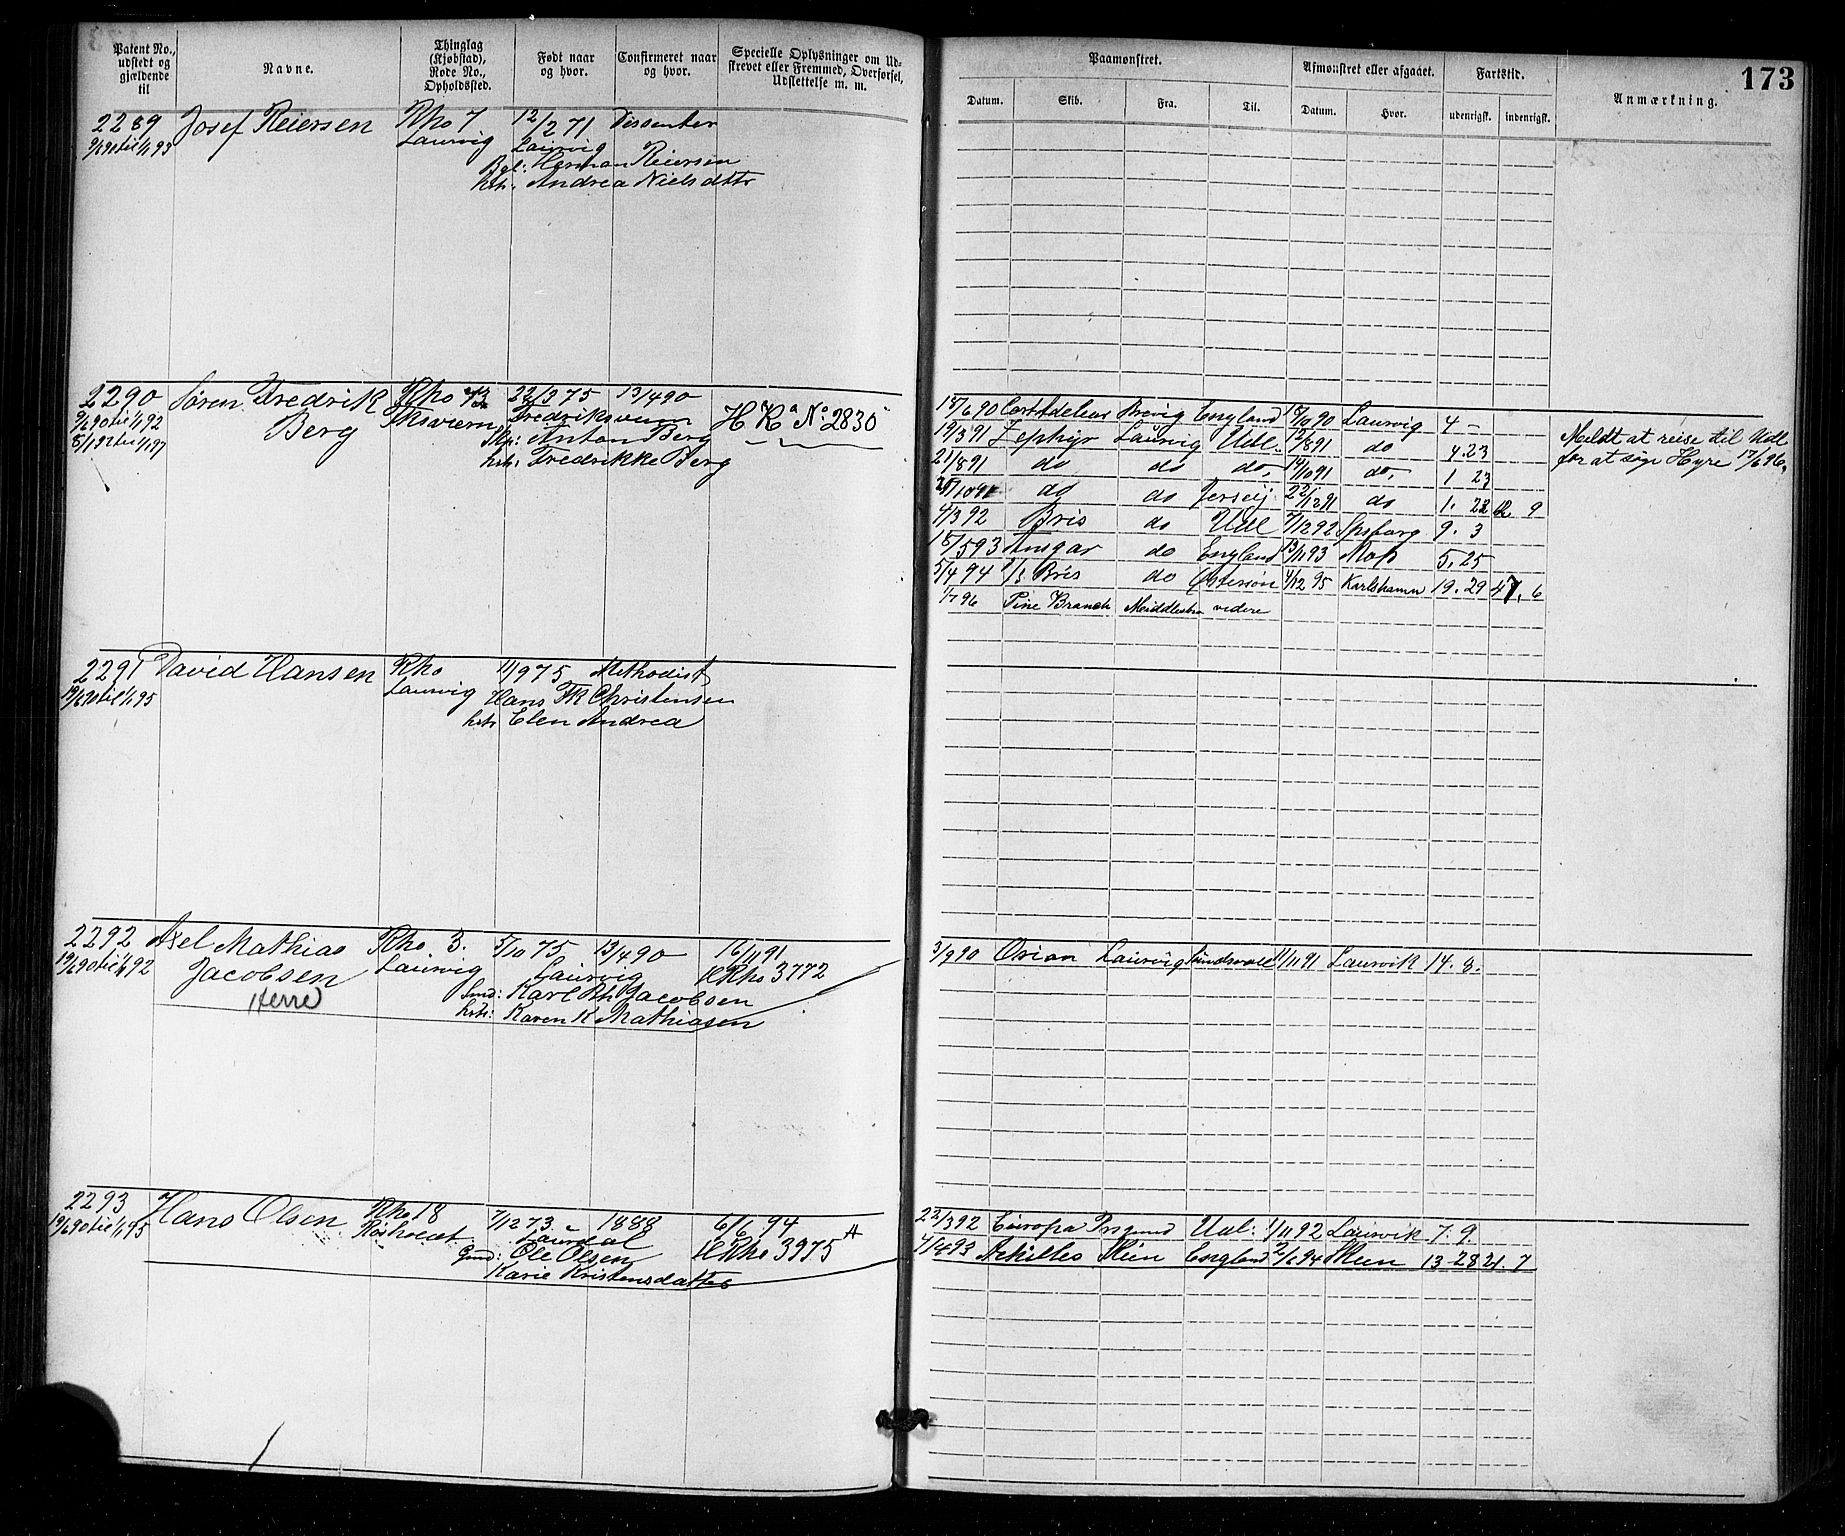 Patent No., udstedt og gjældende til
Navne.
Thinglag (Kjøbstad), Rode No., Opholdssted.
Født naar og hvor.
Confirmeret naar og hvor.
Specielle Oplysninger om Udskrevet eller Fremmed, Overførsel, Udslettelse m. m.
Paamønstret.
Datum.
Skib.
Fra.
Til.
Afmønstret eller afgaaet.
Datum.
Hvor.
Fartstid.
udenrigsk.
indenrigsk.
Anmærkning.
173
2289 Josef Reiersen Rho 7 12/2 71 Dissenter
9/6 90 til 1/1 93 Laurvig Laurvig
Herman Reiersen
hstr: Andrea Nielsdttr
2290 Søren Fredrik Rho 43 22/2 75 13/4 90
9/6 90 til 1/1 92 Berg Fksværn Fredriksværn H Ka No 2830
8/1 92 til 1/1 97 Anton Berg
hstr: Fredrikke Berg
18/6 90 Cort Adelaer Brevig England 18/10 90 Laurvig 4 -
19/3 91 Zephyr Laurvig Udl. 12/8 91 do 4.23
21/8 91 do do do. 14/10 91 do. 1 23
do do Jersey 22/12 91 do 1. 9
4/3 92 Bris do Udl 7/12 92 Spsborg 9. 3
18/5 93 Ansgar do England 13/11 93 Mos 5.25
5/4 94 Bris do Østersøn 4/12 95 Karlshamn 19.29 47. 6
1/7 96 Pine Branch Middlesbro videre
Meldt at reise til Udl
for at søge Hyre 17/6 96.
2291 David Hansen Rho 11/9 75 Methodist
19/6 90 til 1/1 95 Laurvig Hans Fk Christensen
hstr Elen Andrea
2292 Axel Mathias Rho 3. 5/10 75 13/4 90 16/11 91
19/6 90 til 1/1 92 Jacobsen Laurvig Laurvig HRho 3772
Herre Smd: Karl Jacobsen
hstr: Karen K Mathiasen
3/9 90 Osian Laurvig Sundsvald 11/11 91 Laurvik 14. 8.
2293 Hans Olsen Rho 18 7/12 73 1888 6/6 94
19/6 90 til 1/1 95 Laurdal HRho 3975
Gmd: Ole Olsen
Karie Kristensdatter
22/3 92 Europa Prsgrund Udl: 1/11 92 Laurvik 7. 9.
Achilles Skien England 2/6 94 Skien 13 28 21. 7